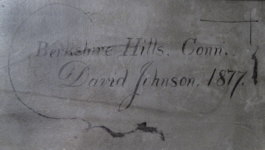 Berkshire Hills. Conn.
David Johnson. 1877.